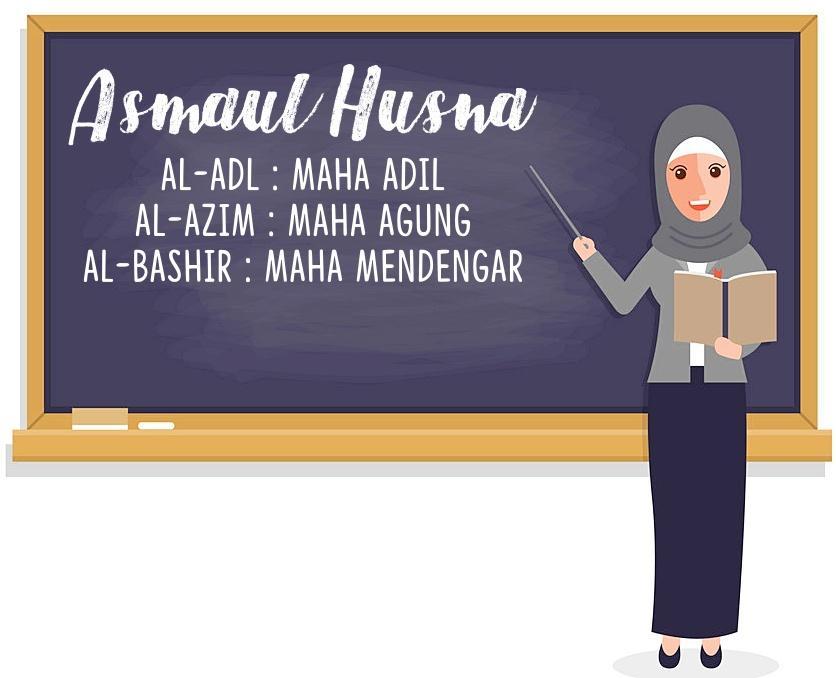 Asmaul Husna
AL-ADL : MAHA ADIL
AL-AZIM : MAHA AGUNG
AL-BASHIR : MAHA MENDENGAR